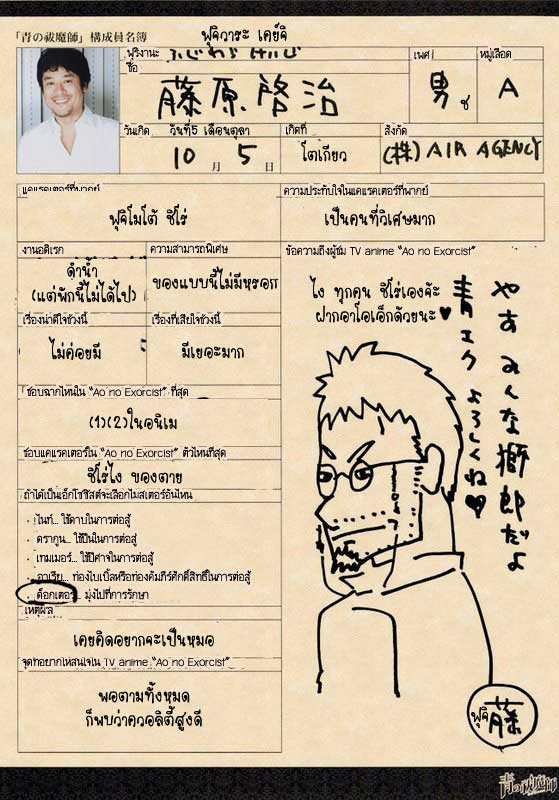 「青の祓魔師」構成員名簿
ฟุจิวาระ เคย์จิ
ฟุริงานะ
ふじわら けいじ
ชื่อ
藤原啓治
เพศ
男 ช
หมู่เลือด
A
วันเกิด วันที่5 เดือนตุลา
10 月 5 日
เกิดที่
โตเกียว
สังกัด
(株) AIR AGENCY
แคแรคเตอร์ที่พากย์
ฟุจิโมโต้ ชิโร่
ความประทับใจในแคแรคเตอร์ที่พากย์
เป็นคนที่วิเศษมาก
งานอดิเรก
ดำน้ำ
(แต่พักนี้ไม่ได้ไป)
ความสามารถพิเศษ
ของแบบนี้ไม่มีหรอก
เรื่องน่าดีใจช่วงนี้
ไม่ค่อยมี
เรื่องที่เสียใจช่วงนี้
มีเยอะมาก
ชอบฉากไหนใน "Ao no Exorcist" ที่สุด
(1)(2)ในอนิเม
ชอบแคแรคเตอร์ใน "Ao no Exorcist" ตัวไหนที่สุด
ชิโร่ไง ของตาย
ถ้าได้เป็นเอ็กโซซิสต์จะเลือกไมสเตอร์อันไหน
• ไนท์... ใช้ดาบในการต่อสู้
• ดรากูน... ใช้ปืนในการต่อสู้
• เทมเมอร์... ใช้ปีศาจในการต่อสู้
• อาเรีย... ท่องไบเบิ้ลหรือท่องคัมภีร์ศักดิ์สิทธิ์ในการต่อสู้
• ด็อกเตอร์... มุ่งไปที่การรักษา
เหตุผล
เคยคิดอยากจะเป็นหมอ
จุดที่อยากให้สนใจใน TV anime "Ao no Exorcist"
พอตามทั้งหมด
ก็พบว่าควอลิตี้สูงดี
ข้อความถึงผู้ชม TV anime "Ao no Exorcist"
ไง ทุกคน ชิโร่เองจ้ะ
ฝากอาโอเอ็กด้วยนะ♥
やあ みんな 獅郎だよ
青エク よろしくね♥
ฟุจิ 藤
青の祓魔師